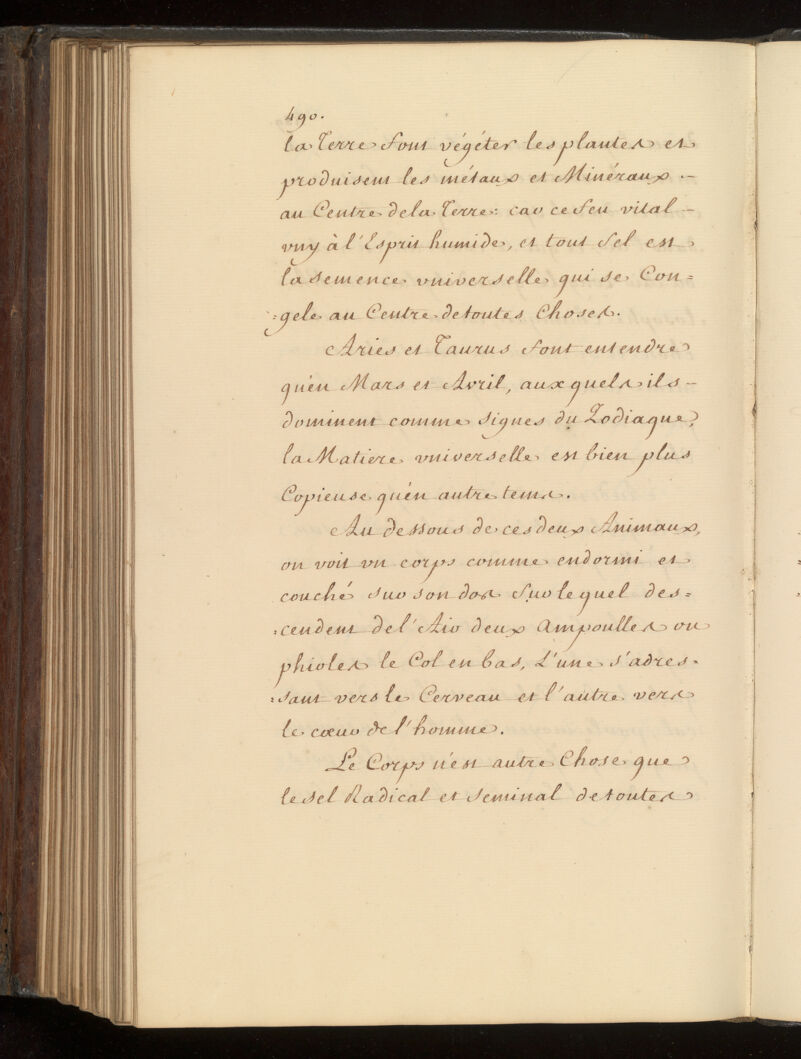 490.
la Terre font végéter les plantes et
produisent les métaux et Minéraux -
au Centre de la Terre: car ce feu vital -
vny à l'Esprit humide, et tout sel est
la semence vniverselle qui se Con=
=gele au Centre de toutes Choses.
Aries et Taurus font entendre
qu'en Mars et Avril, auxquels ils -
dominent comme signes du Zodiaque,
la Matiere vniverselle est bien plus
Copieuse qu'en autre tems.
Au dessous de ces deux Animaux,
on voit vn corps comme endormi et
couché sur son dos sur lequel des=
=cendent de l'Air deux ampoulles ou
phioles le Col en bas, L'une s'adres=
=sant vers le Cerveau et l'autre vers
le cœur de l'homme.
Le Corps n'est autre Chose que
le sel Radical et séminal de toutes